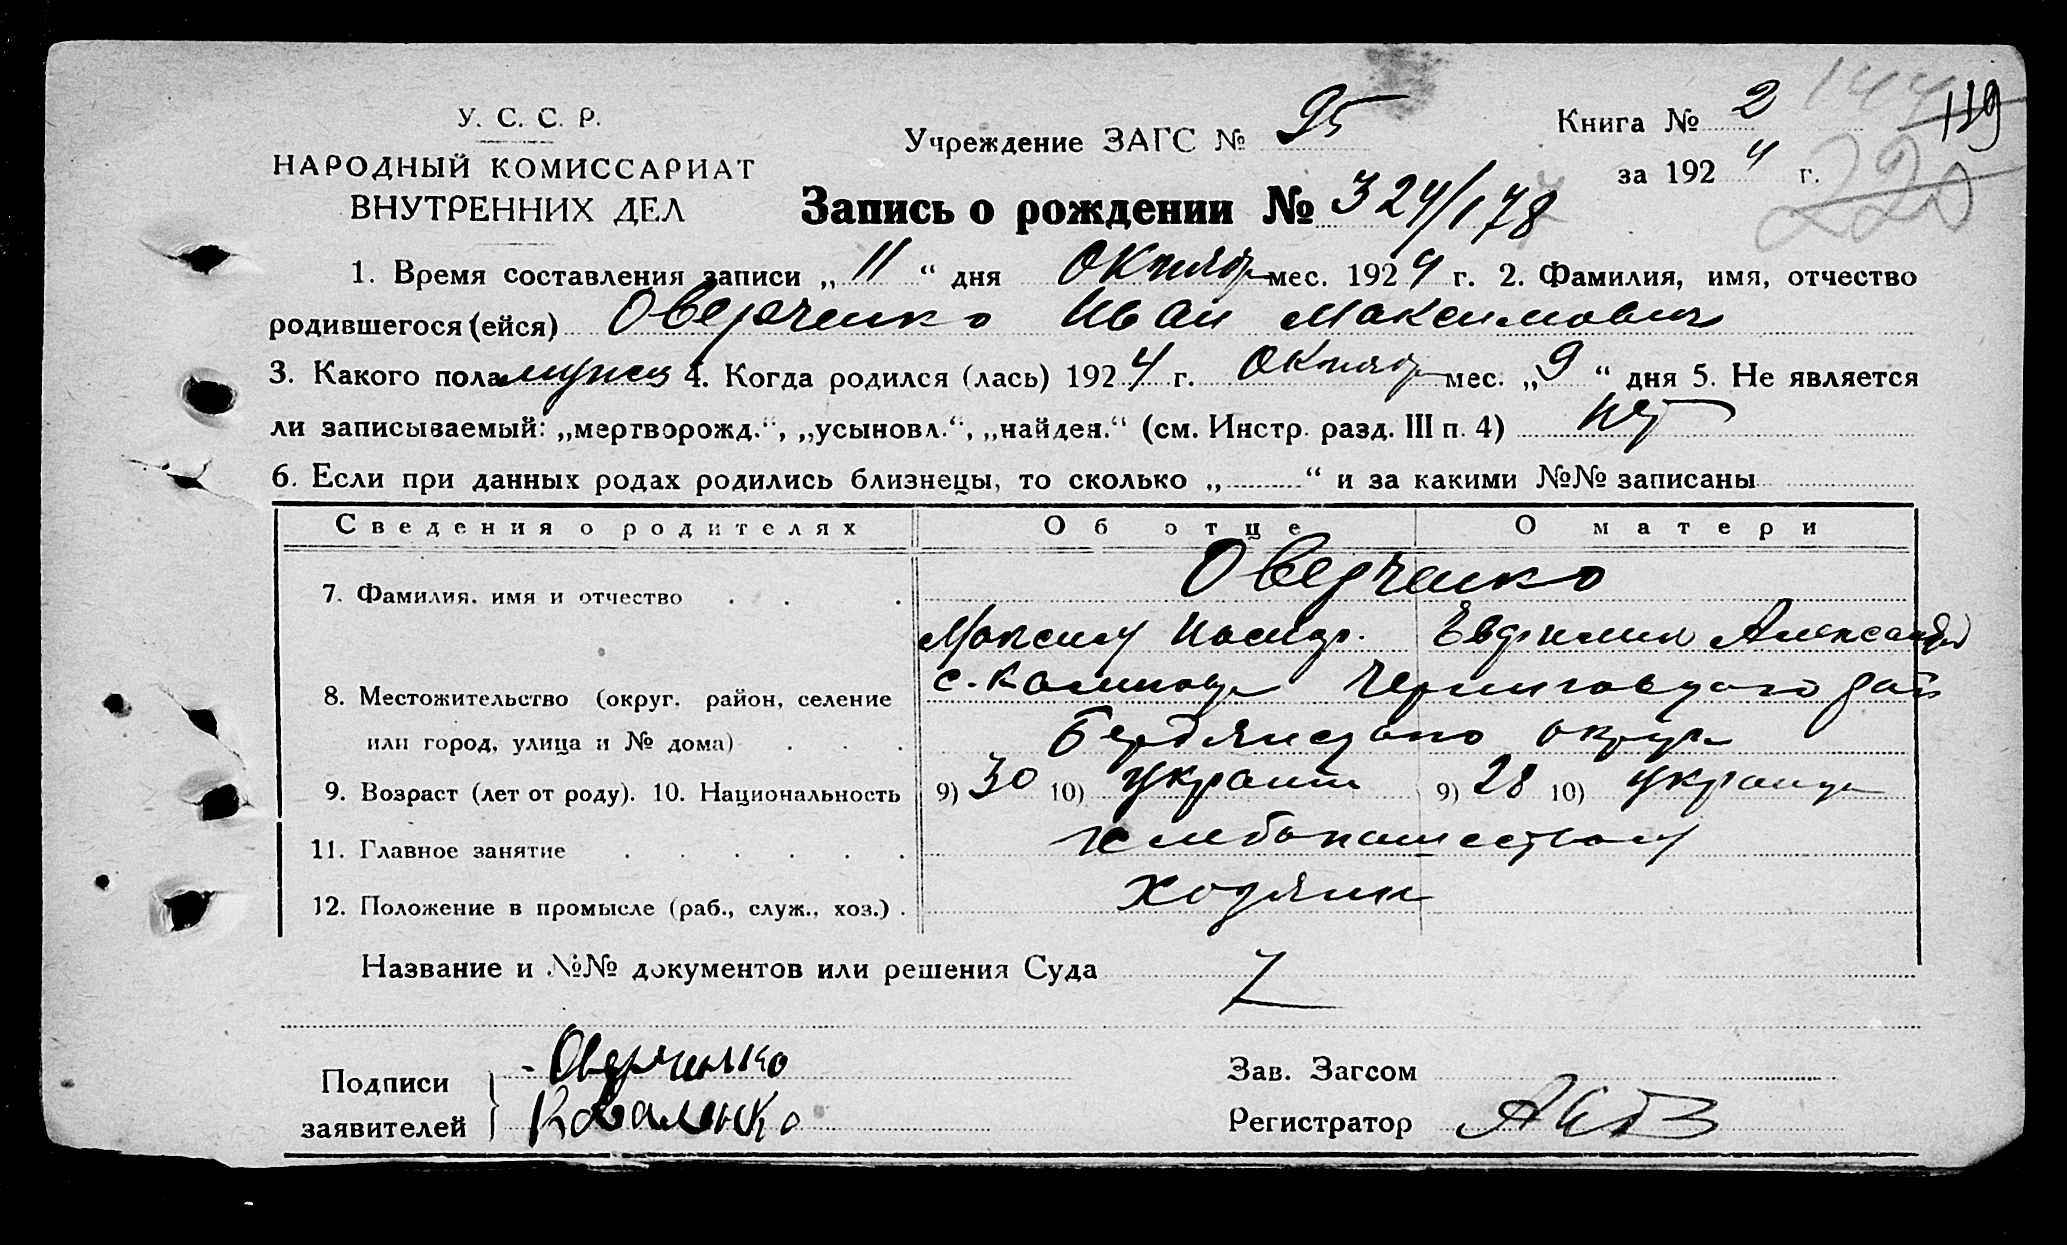 У. С. С. Р.
НАРОДНЫЙ КОМИССАРИАТ
ВНУТРЕННИХ ДЕЛ
Учреждение ЗАГС № 95
Книга № 2
144
119
за 1924 г.
220
Запись о рождении № 324/178
1. Время составления записи „11“ дня Октябр мес. 1924 г. 2. Фамилия, имя, отчество
родившегося (ейся) Оверченко Иван Максимович
3. Какого пола мужск 4. Когда родился (лась) 1924 г. Октябр мес. „9“ дня 5. Не является
ли записываемый: „мертворожд.“, „усыновл.“, „найден.“ (см. Инстр. разд. III п. 4) нет
6. Если при данных родах родились близнецы, то сколько „ “ и за какими №№ записаны
Сведения о родителях Об отце О матери
7. Фамилия, имя и отчество Оверченко
Максим Евфимия Александр
8. Местожительство (округ, район, селение с. Калиновка Черниговского рай
или город, улица и № дома) Бердянского округа
9. Возраст (лет от роду). 10. Национальность 9) 30 10) украин 9) 28 10) украин
11. Главное занятие хлебопашеством
12. Положение в промысле (раб., служ., хоз.) хозяин
Название и №№ документов или решения Суда
Подписи Оверченко
заявителей Коваленко
Зав. Загсом
Регистратор